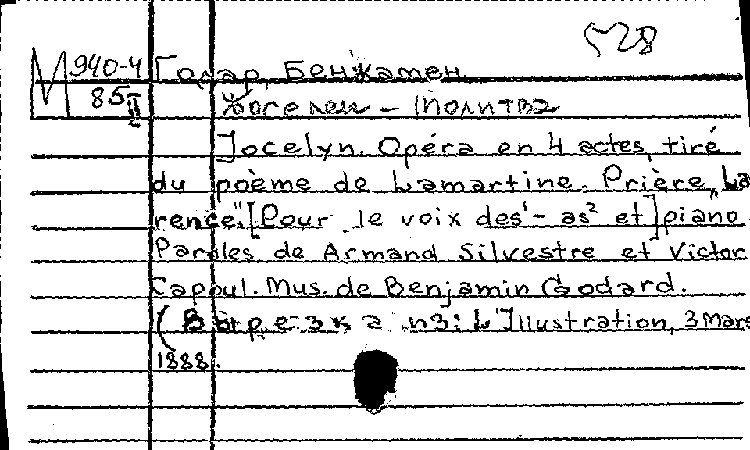 528
М 940-4 Годар, Бенжамен
85 II Жоселен – Молитва
Jocelyn. Opéra en 4 actes, tiré
du poème de Lamartine. Prière „La
rence". [Pour le voix des¹ – as² et] piano
Paroles de Armand Silvestre et Victor
Capoul. Mus. de Benjamin Godard.
(Вырезка из: L'Illustration, 3 Mars
1888).